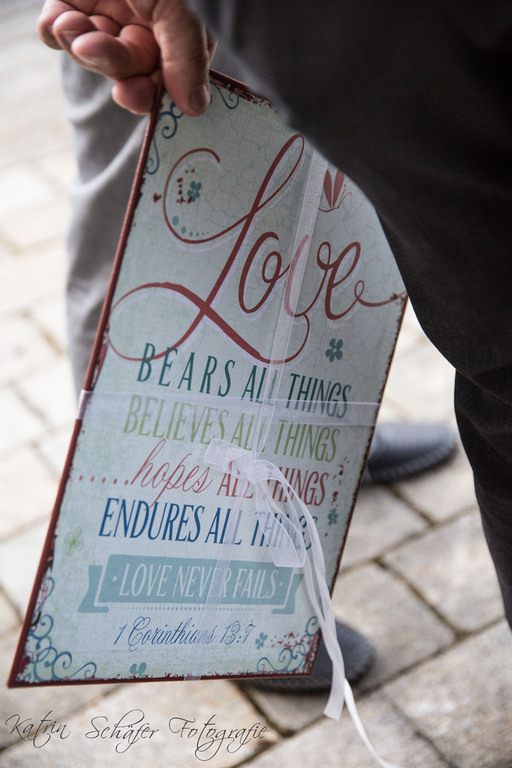 Love
BEARS ALL THINGS
BELIEVES ALL THINGS
.....hopes ALL THINGS
ENDURES ALL THINGS
·LOVE NEVER FAILS·
1 Corinthians 13:7
Katrin Schäfer Fotografie